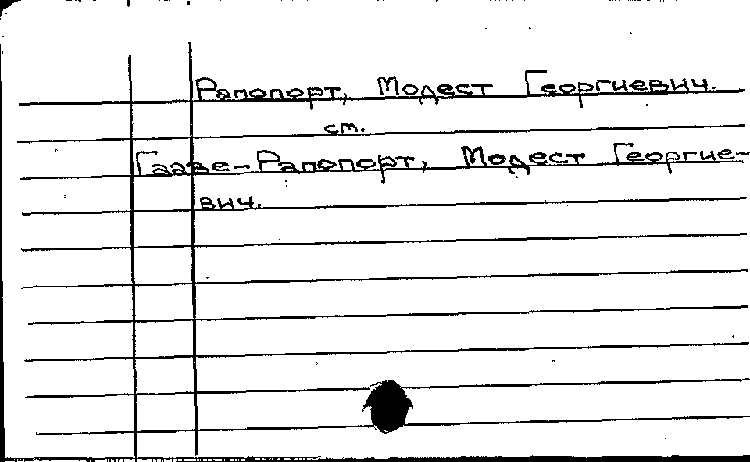 Рапопорт, Модест Георгиевич.
см.
Гаазе-Рапопорт, Модест Георгие-
вич.